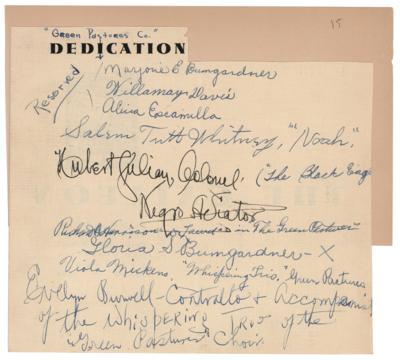 "Green Pastures Co."
15
DEDICATION
Reserved
Marjorie E Bumgardner
Willamay Davis
Alicia Escamilla
Salem Tutt Whitney, "Noah."
Hubert Julian, Colonel. ("The Black Eag
Negro Aviator
in The Green Pastures"
Gloria S Bumgardner - X
Viola Mickens, "Whispering Trio," Green Pastures
Evelyn Burwell - Contralto & Accompanist
of the Whispering Trio of the
"Green Pastures" Choir.